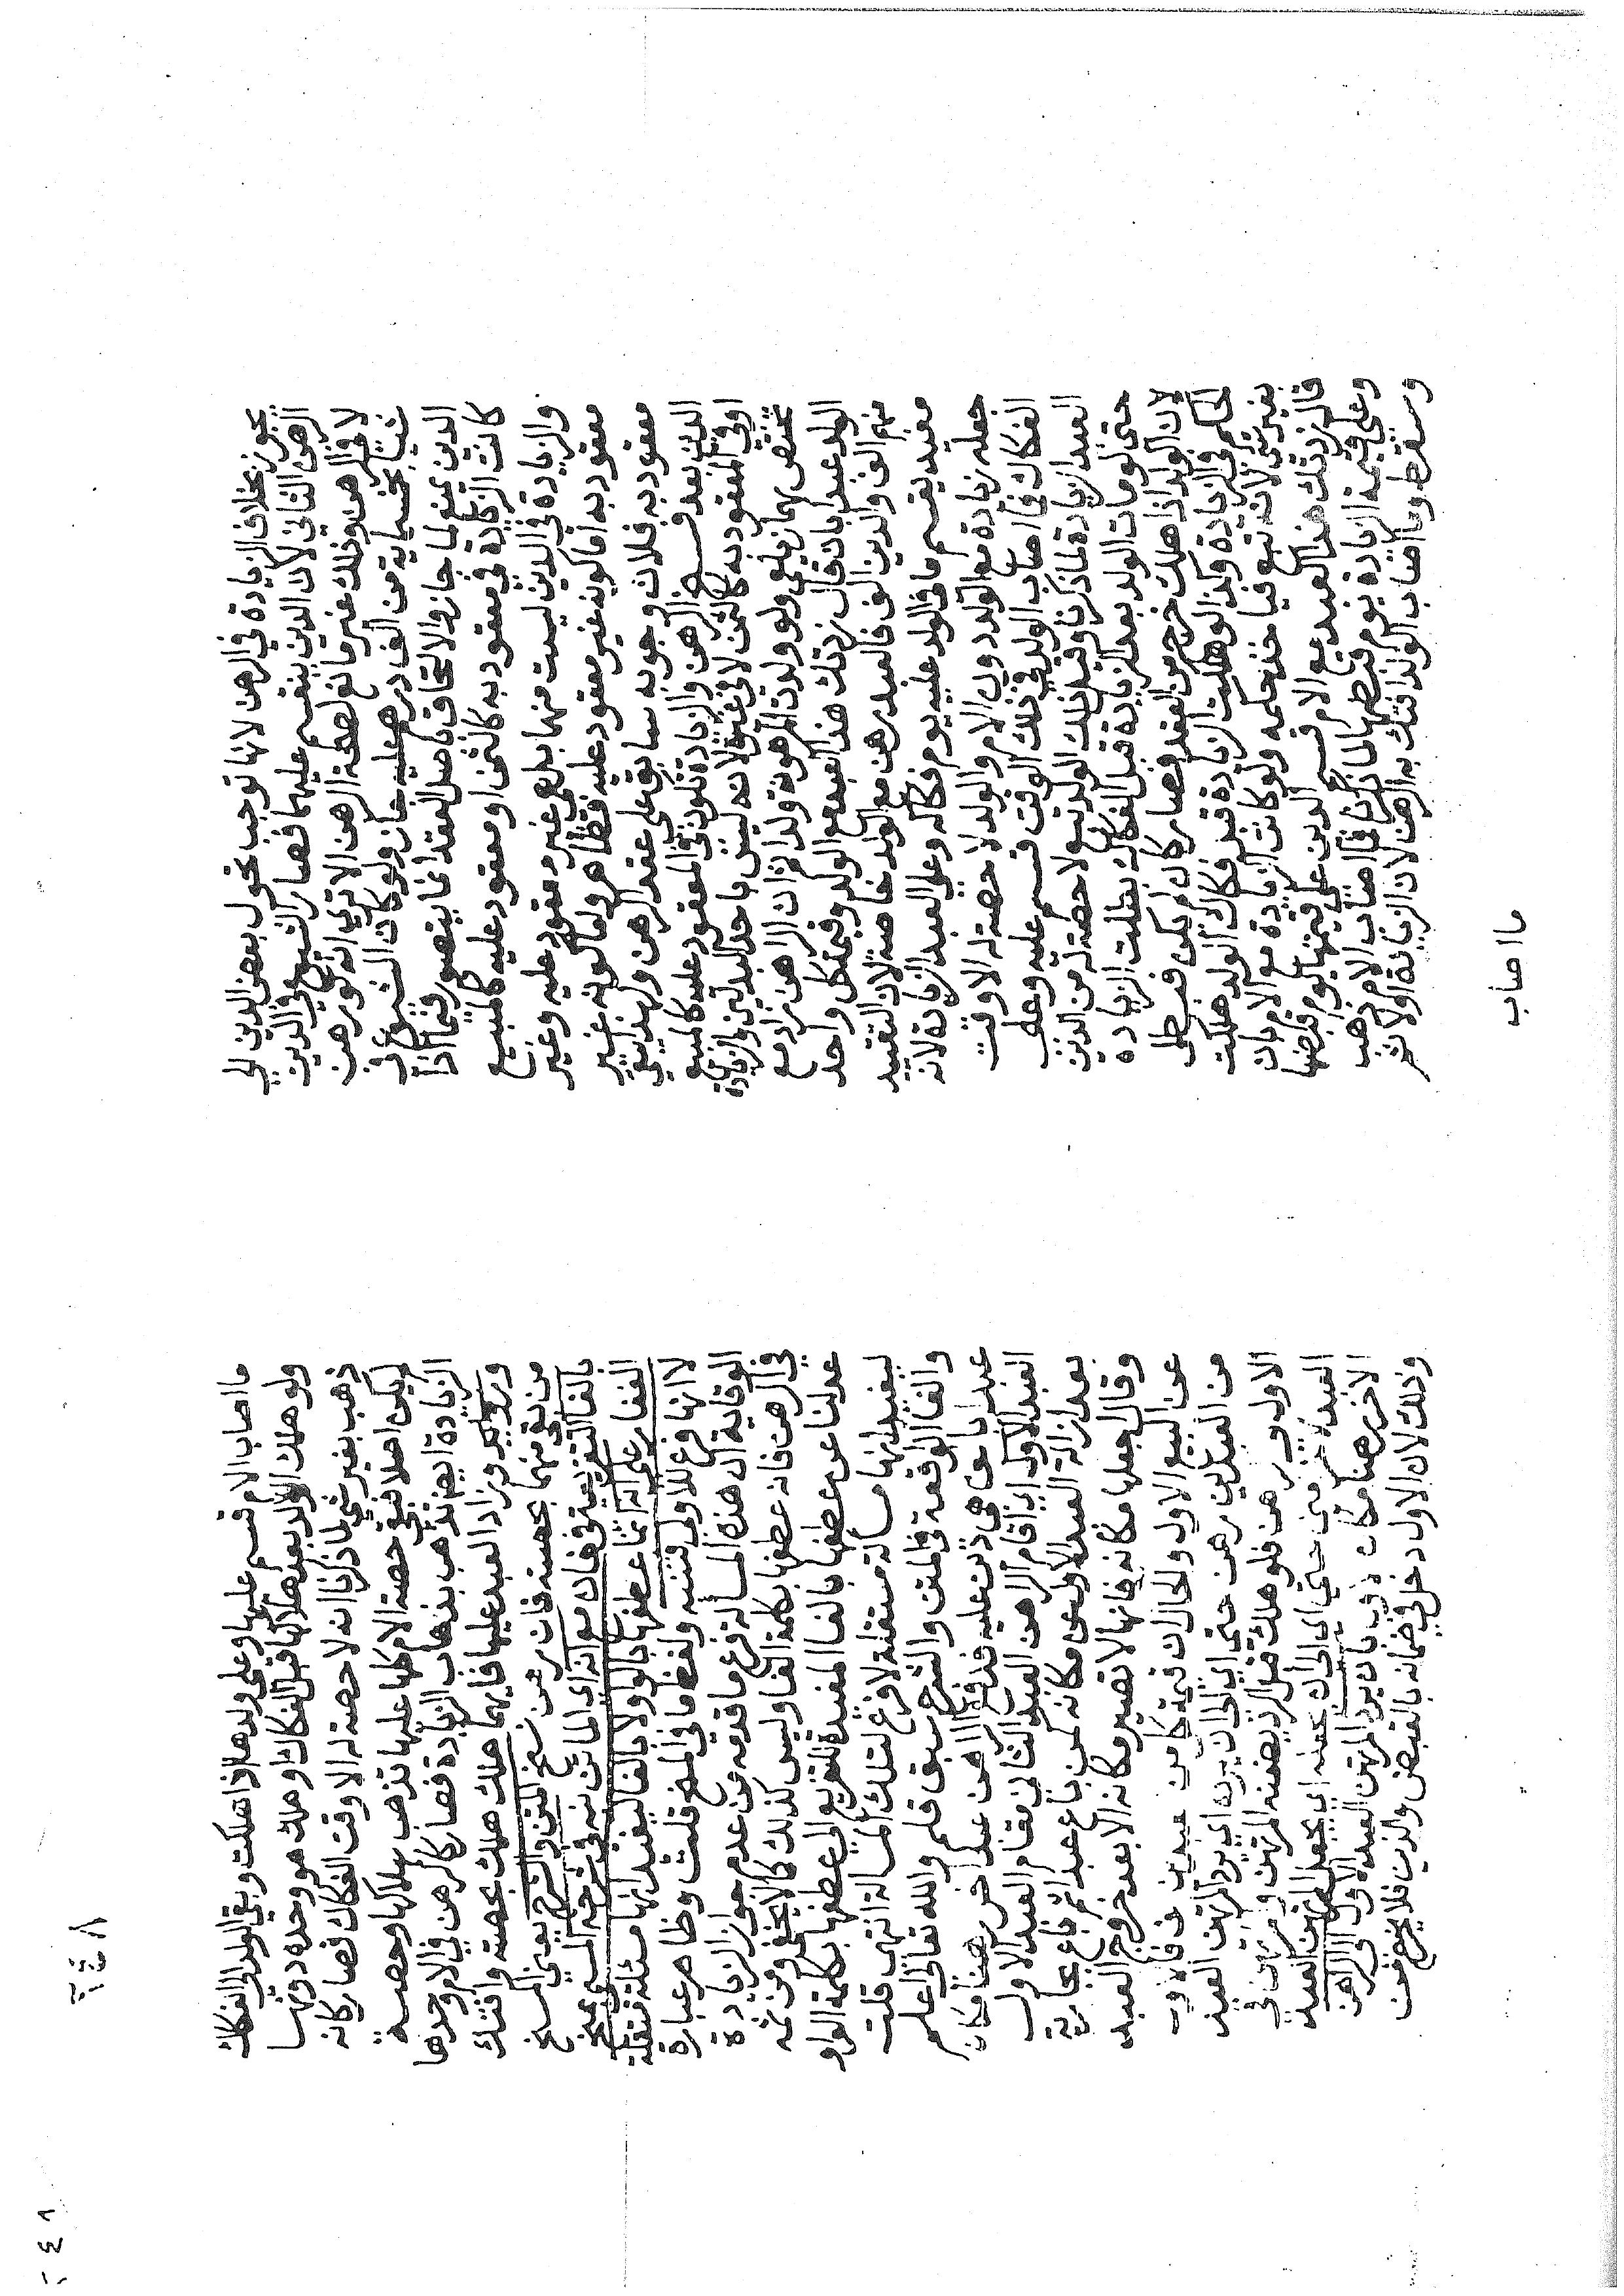 يجوز بخلاف الزيادة في الرهن لانها توجب تحول بعض الدين الي
الرهن الثاني لان الدين ينقسم عليهما فصار الشيوع في الدين
لا في الرهن وذلك غير مانع لصحة الرهن الا تري انه لو رهن
شيئا بخمسماية من الف درهم عليه جاز ولو كان الشيوع في
الدين يمنع لما جاز والالتحاق باصل العقد انما يتصور فيما اذا
كانت الزيادة في معقود به كالثمن او معقود عليه كالمبيع
والزيادة في الدين ليست منهما بل هي غير معقود عليه وغير
معقود به اما كونه غير معقود عليه فظاهر واما كونه غير
معقود به فلان وجوبه سابق علي عقد الرهن ولهذا يبقي
الدين بعد فسخ الرهن والزيادة تكون في المعقود عليه كالمبيع
او في المعقود به كالثمن لا في غيره لانه ليس باحد البدلين والزيادة
تختص بهما زيلعي ولو ولدت المرهونة ولدا ثم ان الراهن زاد مع
الولد عبدا بان قال زدتك هذا العبد مع الولد وقيمة كل واحد
منهم الف والدين الف فالعبد رهن مع الولد خاصة لان التقييد
مفيد يقسم ما في الولد عليه يوم فكاكه وعلي العبد الزيادة لانه
جعله زيادة مع الولد دون الام والولد لا حصة له الا وقت
الفكاك فما اصاب الولد في ذلك الوقت قسم عليه وعلي
العبد الزيادة لما ذكرنا وقبل ذلك الولد تبع لا حصة له من الدين
حتي لو مات الولد بعد الزيادة قبل الفكاك بطلت الزيادة
لان الولد اذا هلك خرج من العقد فصار كان لم يكن فبطل
الحكم في الزيادة وكذا لو هلكت الزيادة قبل فكاك الولد هلكت
بغير شي لانه تبع فياخذ حكمه ولو كانت الزيادة مع الام بان
قال زدتك هذا العبد مع الام قسم الدين علي قيمتها يوم قبضها
وعلي قيمة الزيادة يوم قبضها لما ذكرنا فما اصاب الام ذهب
وسقط وما اصاب الولد افتك به الرهن لان الزيادة اولا ثم
ما اصاب
ما اصاب الام قسم عليها وعلي ولدها اذا هلكت وبقي الولد الي الفكاك
ولو هلك الولد بعد هلاكها قبل الفكاك او هلك هو وحده دونها
ذهب بغير شي لما ذكرنا انه لا حصة له الا وقت الفكاك فصار كانه
لم يكن اصلا فبقي حصة الام كلها عليها تذهب بهلاكها وحصة
الزيادة ايضا تذهب بذهاب الزيادة فصار كالرهن في الام وحدها
وزاد العبد عليها فايهما هلك هلك بحصته وافتك
من بقي منهما بحصته فان رهن نسخ المتن والشرح يعني المسخ
بالفا التفريعية في فان مع انه اي الماتن نبه في شرحه المسمي بمنح
الغفار علي انه انما عطفها بالواو لا بالفا ليفيد انها مسئلة مستقلة
لا انها فرع للاولي فتنبه ولفظ ما في المنح قلت وظاهر عبارة
الوقاية ان هذه المسالة فرع ما قدمه من عدم جواز الزيادة
في الرهن فانه عطفها بكلمة الفا وليس كذلك كما لا يخفي ومن ثمه
عدلنا عن عطفها بالفا المفيدة للتفريع الي عطفها بكلمة الواو
ليفيد انها مسالة مستقلة لا فرع لتلك المسالة انتهي قلت
والفا الواقعة في المتن والشرح سبق قلم والله تعالي اعلم
عبدا بالف هي دين عليه فدفع الراهن عبدا اخر رهنا مكان
العبد الاول اي اقام الراهن العبد الثاني مقام العبد الاول
بعد ازالة العبد الاول عن مكانه كمن باع عبدا ثم باع بجارية
وقال جعلها مكانه فانها لا تصير مكانه الا بعد خروج العبد
عن البيع الاول والحال ان قيمة كل من عبدين الف فالاول
من العبدين رهن حتي اي الي ان يرده اي يرد المرتهن العبد
الاول الي رهن فلو هلك قبل الرد يضمنه المرتهن والمرتهن في
العبد الاخر امين حتي اي الي ان يجعله اي يجعل المرتهن العبد
الاخر رهنا مكان الاول بان يرد المرتهن العبد الاول الي الراهن
وذلك لان الاول دخل في ضمانه بالقبض والدين فلا يخرج عن